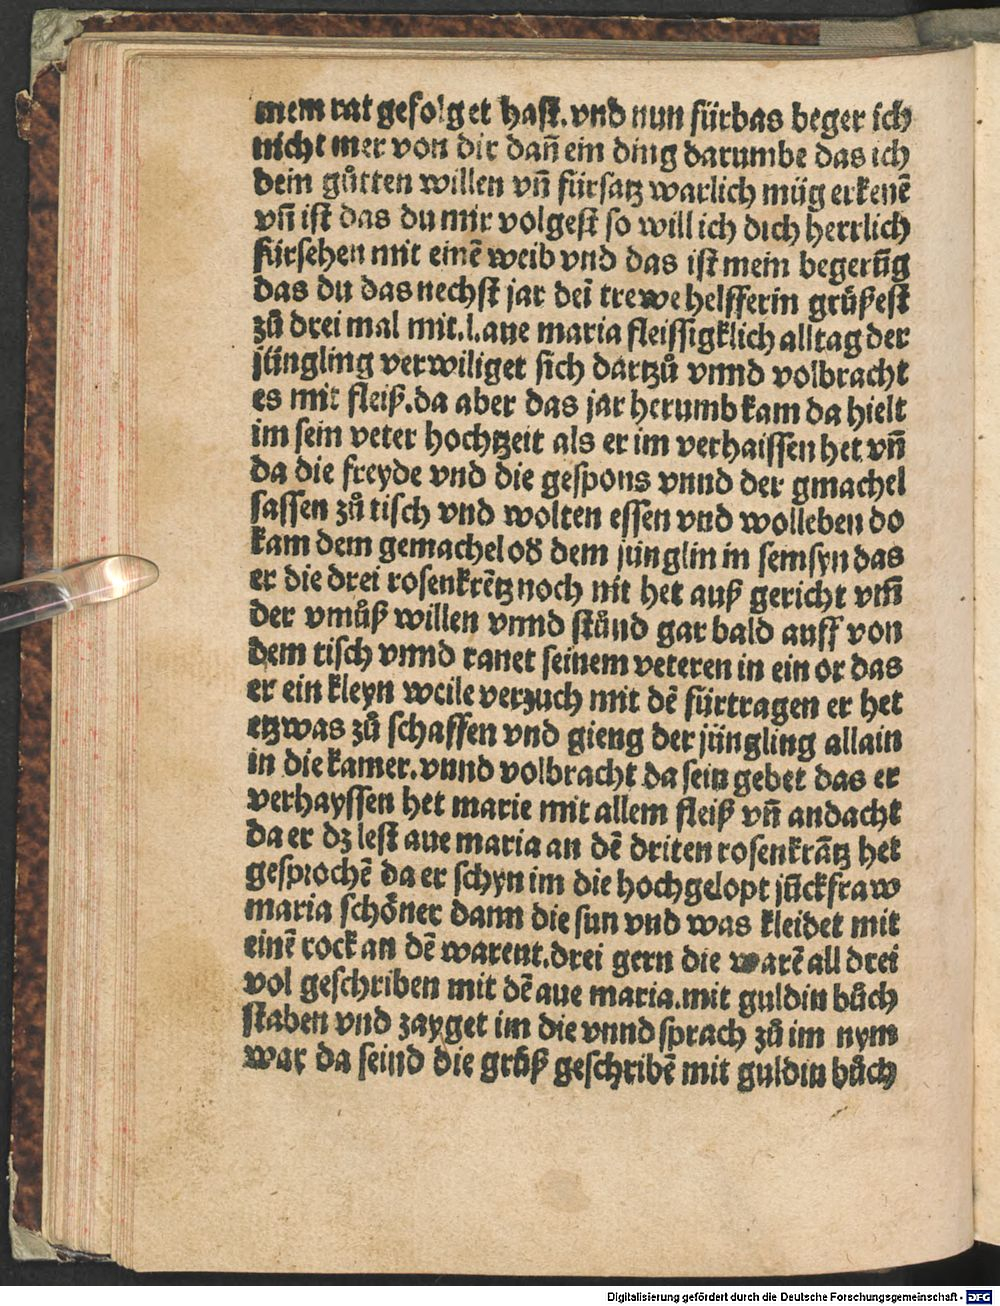 mem rat gefolget hast. vnd nun fürbas beger ich
nicht mer von dir dañ ein ding darumbe das ich
dein gůtten willen vñ fürsatz warlich müg erkenē
vñ ist das du mir volgest so will ich dich herrlich
fürsehen mit einē weib vnd das ist mein begerūg
das du das nechst jar dei trewe helfferin grüßest
zů drei mal mit.l.aue maria fleissigklich alltag der
jüngling verwiliget sich dartzů vnnd volbracht
es mit fleiß.da aber das jar herumb kam da hielt
im sein veter hochtzeit als er im verhaissen het vñ
da die freyde vnd die gespons vnnd der gmachel
sassen zů tisch vnd wolten essen vnd wolleben do
kam dem gemachel oď dem jünglin in semsyn das
er die drei rosenkrētz noch nit het auß gericht vm̄
der vmůß willen vnnd stůnd gar bald auff von
dem tisch vnnd ranet seinem veteren in ein or das
er ein kleyn weile verzuch mit dē fürtragen er het
etzwas zů schaffen vnd gieng der jüngling allain
in die kamer.vnnd volbracht da sein gebet das er
verhayssen het marie mit allem fleiß vñ andacht
da er dz lest aue maria an dē driten rosenkrātz het
gesprochē da er schyn im die hochgelopt jūckfraw
maria schöner dann die sun vnd was kleidet mit
einē rock an dē warent.drei gern die warē all drei
vol geschriben mit dē aue maria.mit guldin bůch
staben vnd zayget im die vnnd sprach zů im nym
war da seind die grůß geschribē mit guldin bůch
Digitalisierung gefördert durch die Deutsche Forschungsgemeinschaft - DFG